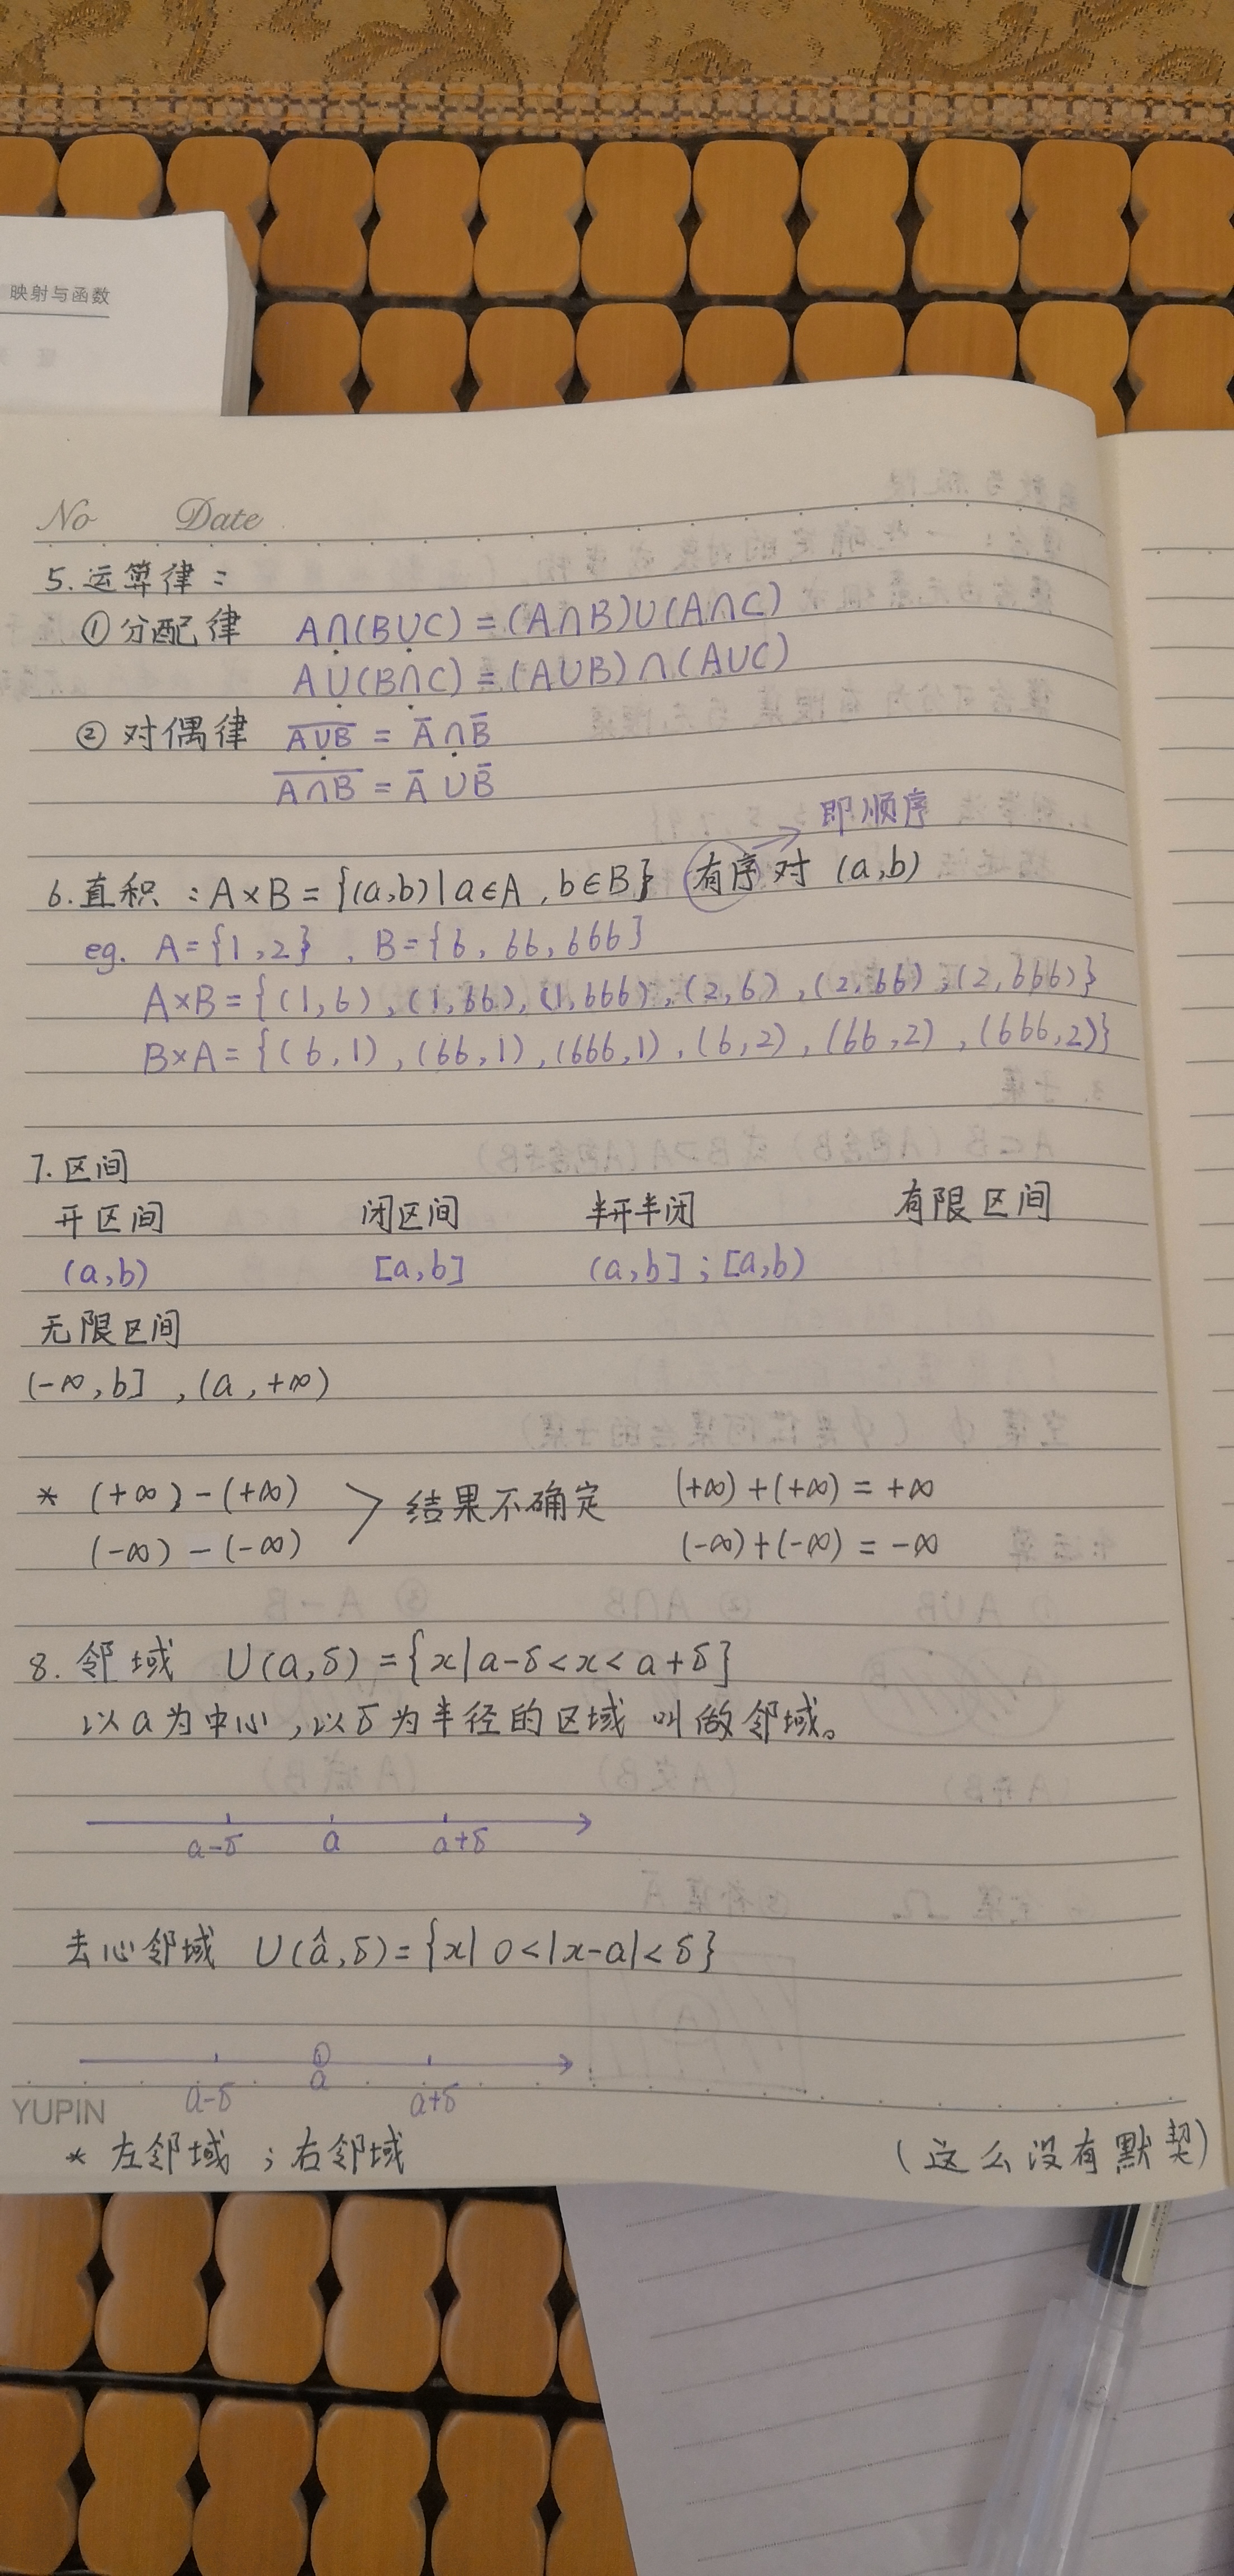 映射与函数
No Date
5. 运算律:
① 分配律 A∩(B∪C) = (A∩B)∪(A∩C)
A∪(B∩C) = (A∪B)∩(A∪C)
② 对偶律 \overline{A∪B} = \overline{A}∩\overline{B}
\overline{A∩B} = \overline{A}∪\overline{B}
即顺序
6. 直积 : A×B = {(a,b)|a∈A, b∈B} 有序对 (a,b)
eg. A={1,2}, B={6, 66, 666}
A×B = {(1,6), (1,66), (1,666), (2,6), (2,66), (2,666)}
B×A = {(6,1), (66,1), (666,1), (6,2), (66,2), (666,2)}
7. 区间
开区间 闭区间 半开半闭 有限区间
(a,b) [a,b] (a,b] ; [a,b)
无限区间
(-∞,b] , (a,+∞)
* (+∞)-(+∞) > 结果不确定 (+∞)+(+∞) = +∞
(-∞)-(-∞) (-∞)+(-∞) = -∞
8. 邻域 U(a,δ) = {x|a-δ<x<a+δ}
以a为中心,以δ为半径的区域 叫做邻域。
a-δ a a+δ
去心邻域 U(â,δ) = {x| 0<|x-a|<δ}
a-δ a a+δ
YUPIN
* 左邻域 ; 右邻域 (这么没有默契)